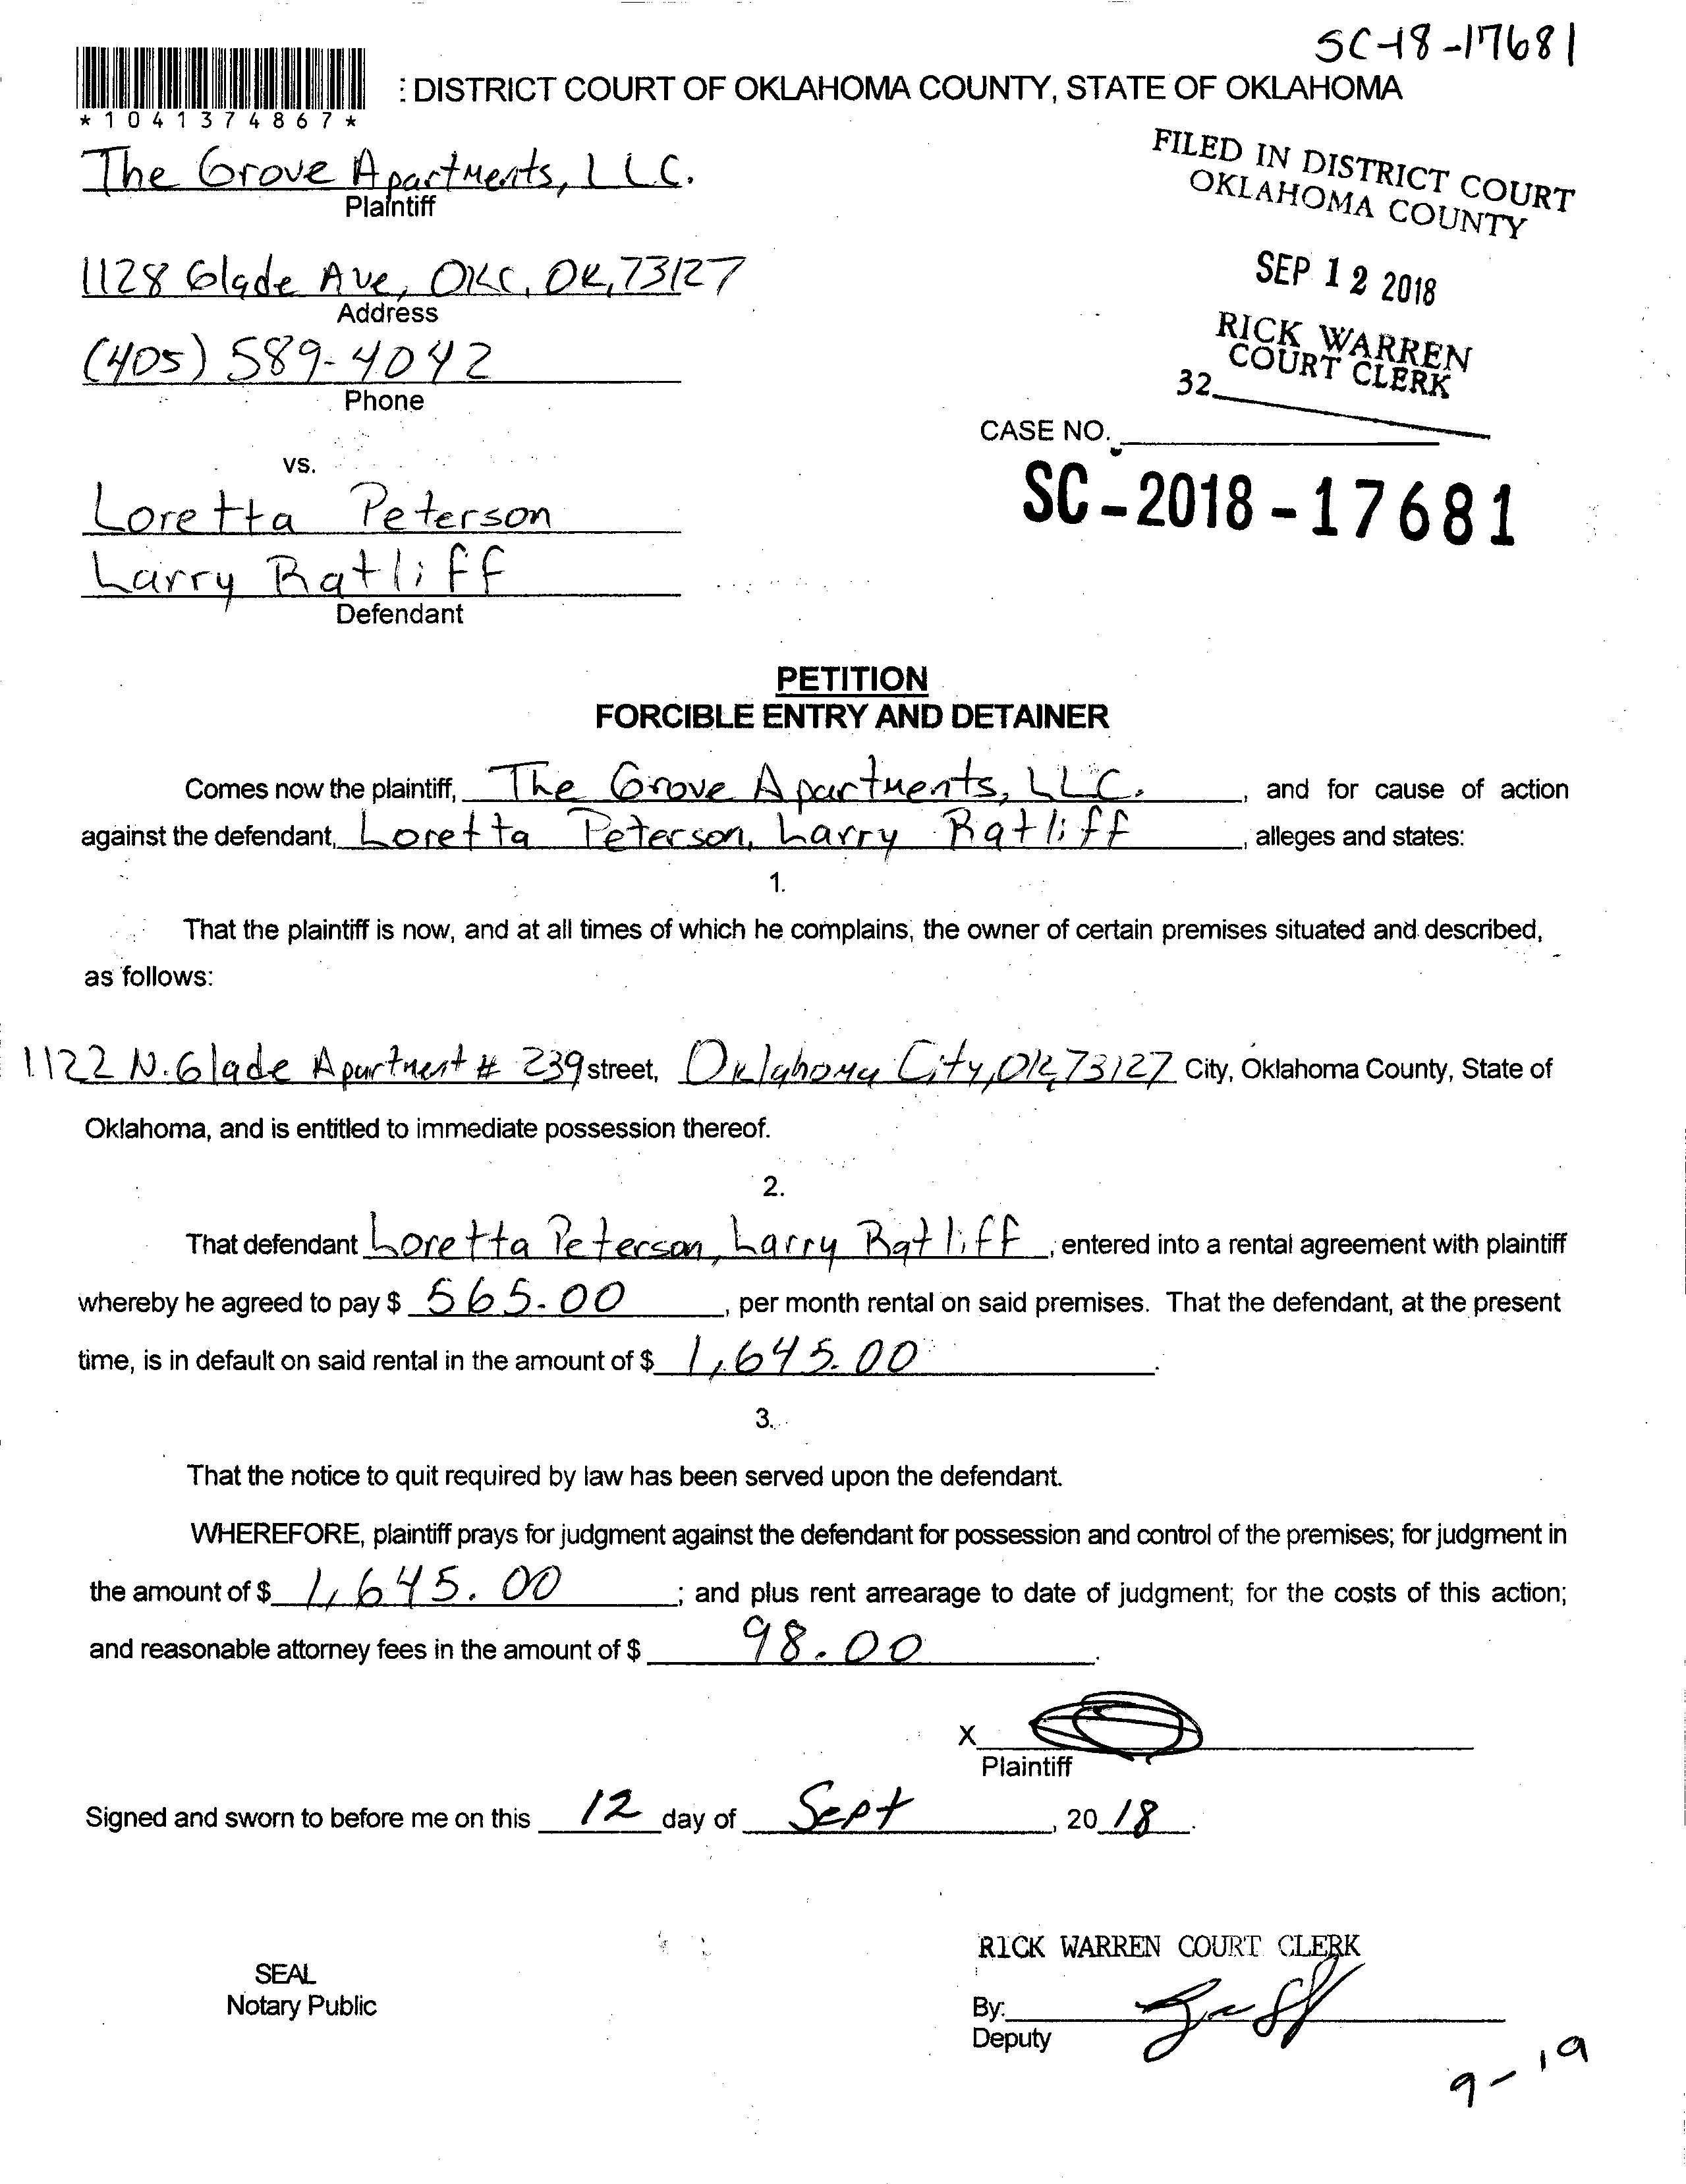 SC-18-17681
: DISTRICT COURT OF OKLAHOMA COUNTY, STATE OF OKLAHOMA
*1041374867*
The Grove Apartments, LLC.
Plaintiff
FILED IN DISTRICT COURT
OKLAHOMA COUNTY
1128 Glade Ave, OKC, OK, 73127
Address
SEP 12 2018
(405) 589-4042
Phone
RICK WARREN
COURT CLERK
32
CASE NO.
vs.
SC-2018-17681
Loretta Peterson
Larry Ratliff
Defendant
PETITION
FORCIBLE ENTRY AND DETAINER
Comes now the plaintiff, The Grove Apartments, LLC. , and for cause of action
against the defendant, Loretta Peterson, Larry Ratliff , alleges and states:
1.
That the plaintiff is now, and at all times of which he complains, the owner of certain premises situated and described,
as follows:
1122 N. Glade Apartment # 239 street, Oklahoma City, OK, 73127 City, Oklahoma County, State of
Oklahoma, and is entitled to immediate possession thereof.
2.
That defendant Loretta Peterson, Larry Ratliff , entered into a rental agreement with plaintiff
whereby he agreed to pay $ 565.00 , per month rental on said premises. That the defendant, at the present
time, is in default on said rental in the amount of $ 1,645.00 .
3.
That the notice to quit required by law has been served upon the defendant.
WHEREFORE, plaintiff prays for judgment against the defendant for possession and control of the premises; for judgment in
the amount of $ 1,645.00 ; and plus rent arrearage to date of judgment; for the costs of this action;
and reasonable attorney fees in the amount of $ 98.00 .
X
Plaintiff
Signed and sworn to before me on this 12 day of Sept , 20 18 .
RICK WARREN COURT CLERK
SEAL
Notary Public
By:
Deputy
9-19